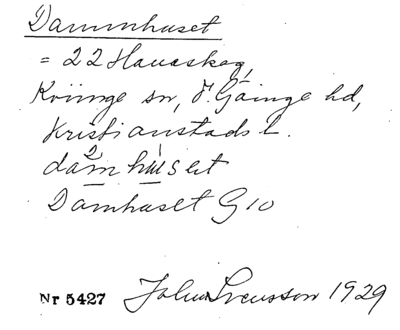 Dammhuset
= 22 Hanaskog,
Kviinge sn, Ö. Göinge hd,
Kristianstads l.
damhuset
Damhuset G10
Nr 5427 John Svensson 1929